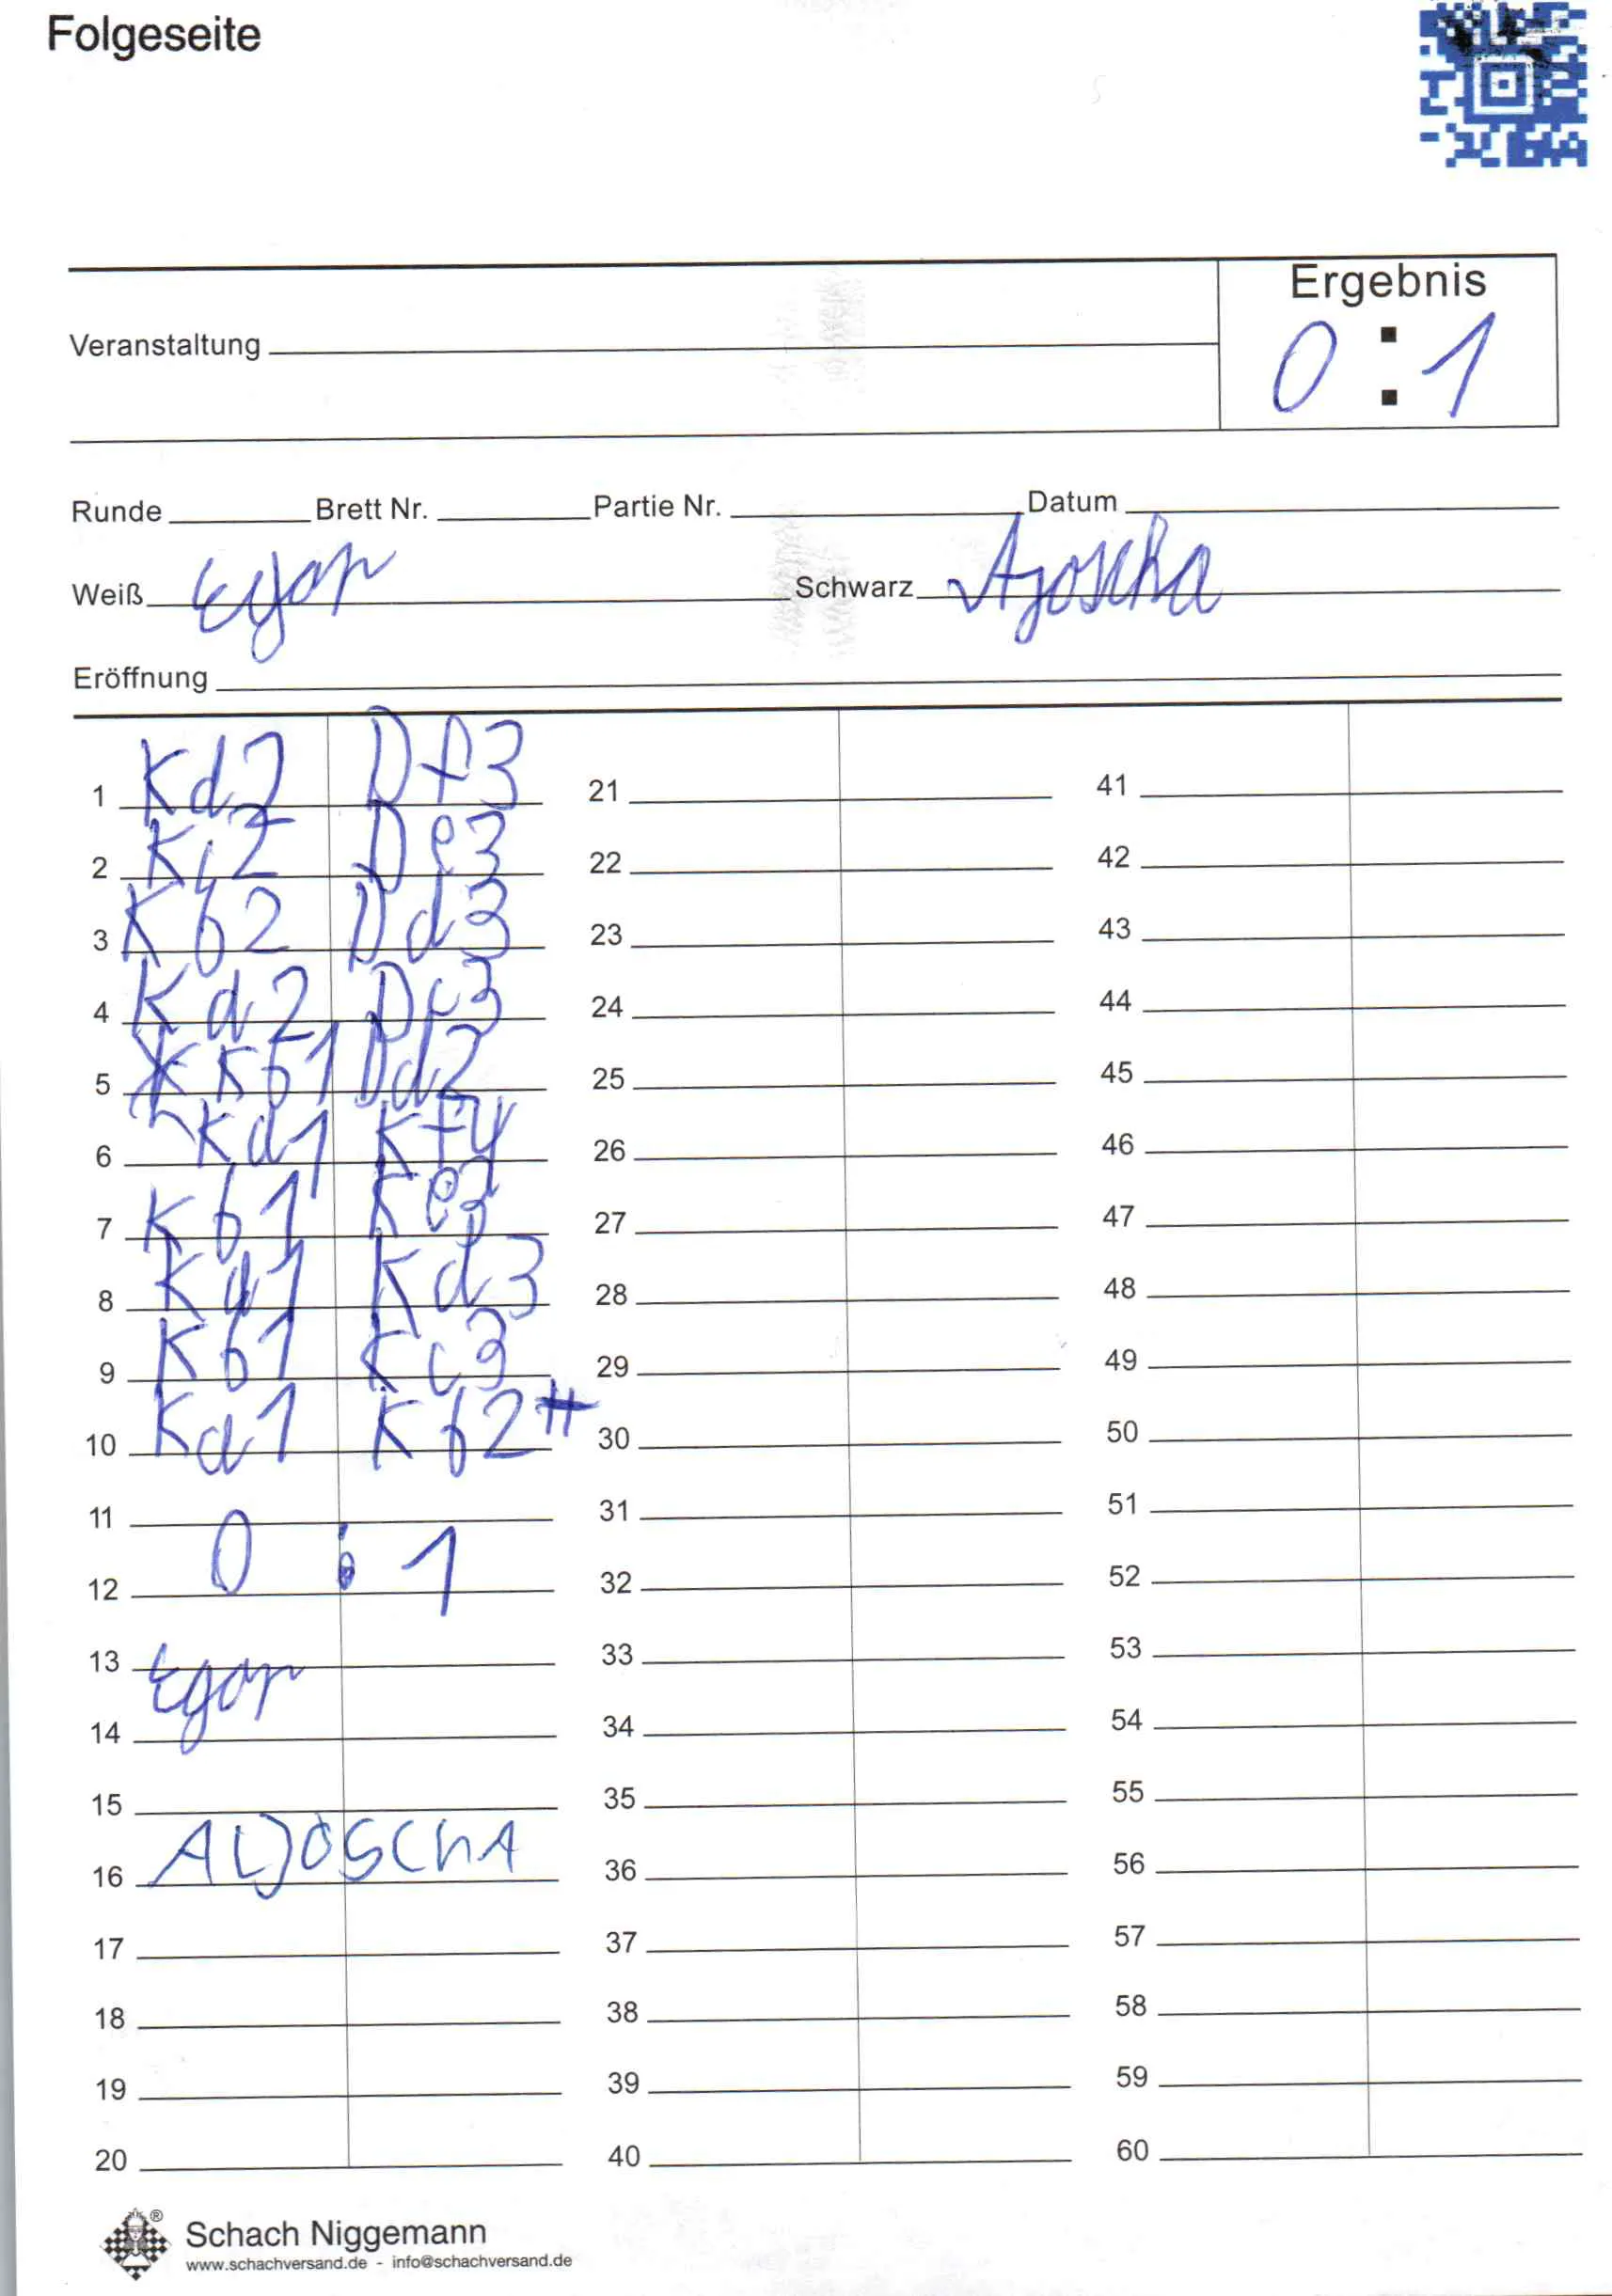 Folgeseite
Ergebnis
0 : 1
Veranstaltung
Runde Brett Nr. Partie Nr. Datum
Weiß Egon Schwarz Ajoscha
Eröffnung
1 Kd2 Df3 21 41
2 Kc2 De3 22 42
3 Kb2 Dd3 23 43
4 Ka2 Dc3 24 44
5 Kb1 Dd2 25 45
6 Ka1 Kf4 26 46
7 Kb1 Ke3 27 47
8 Ka1 Kd3 28 48
9 Kb1 Kc3 29 49
10 Ka1 Kb2# 30 50
11 31 51
0 : 1
12 32 52
13 Egon 33 53
14 34 54
15 35 55
16 ALJOSCHA 36 56
17 37 57
18 38 58
19 39 59
20 40 60
Schach Niggemann ®
www.schachversand.de - info@schachversand.de